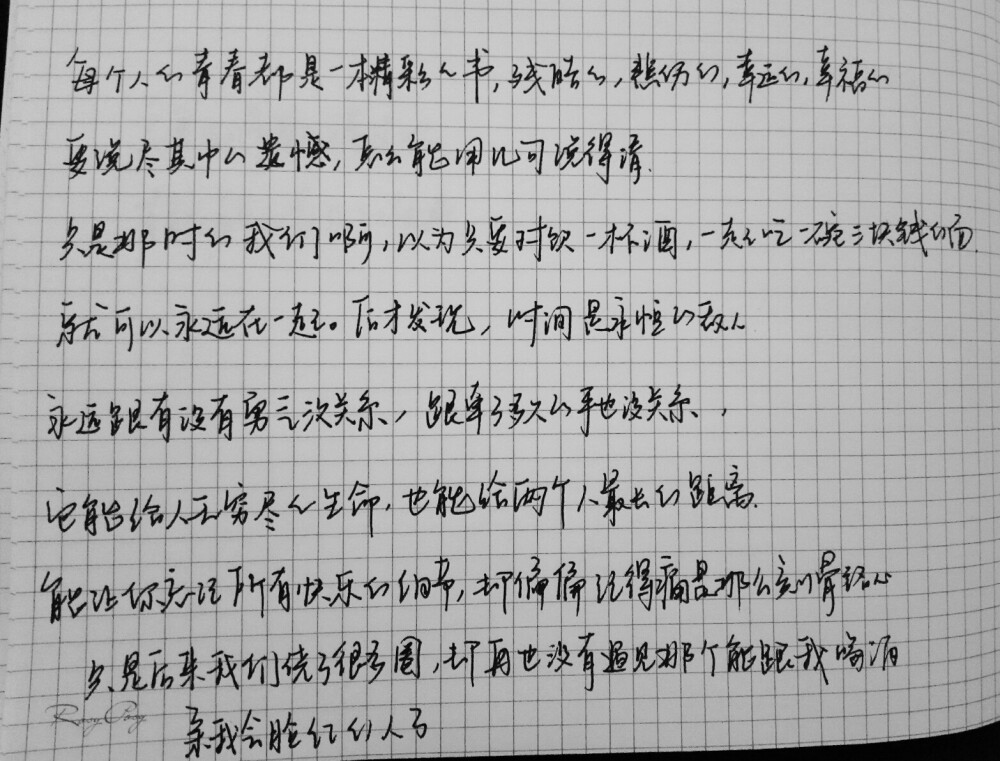 每个人的青春都是一本精彩的书,残酷的,悲伤的,幸运的,幸福的
要说尽其中的遗憾,怎么能用几句说得清.
只是那时的我们啊,以为只要对饮一杯酒,一起吃一碗三块钱的面
就可以永远在一起。后才发现,时间是永恒的敌人
永远跟有没有第三次关系,跟牵了多久的手也没关系,
它能给人无穷尽的生命,也能给两个人最长的距离.
能让你忘记所有快乐的细节,却偏偏记得痛是那么刻骨铭心
只是后来我们绕了很多圈,却再也没有遇见那个能跟我喝酒
亲我会脸红的人了